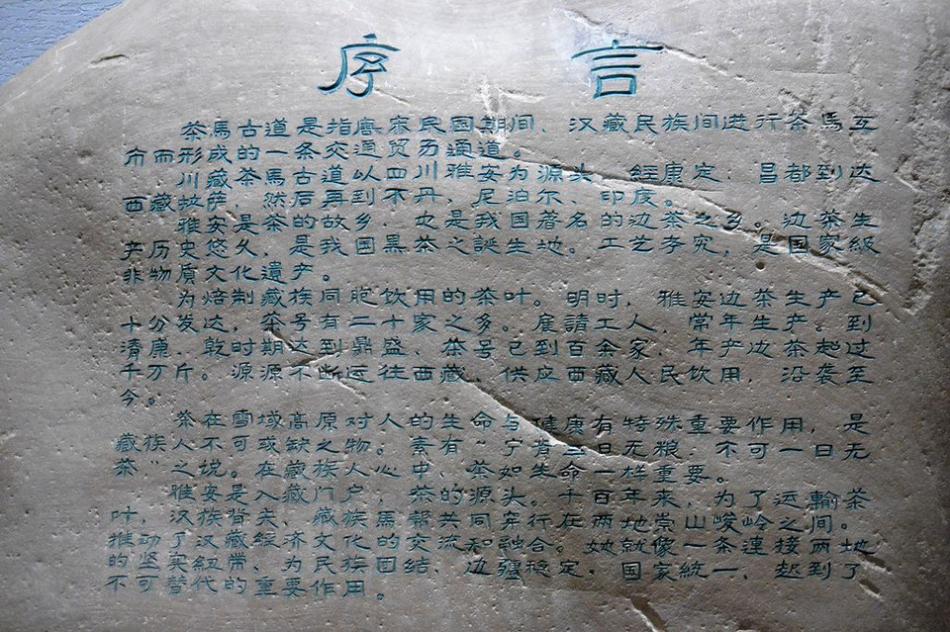 序言
茶馬古道是指唐宋民国期间、汉藏民族间进行茶馬互
市而形成的一条交通贸历通道。
川藏茶馬古道以四川雅安为源头，經康定，昌都到达
西藏拉萨，然后再到不丹，尼泊尔、印度。
雅安是茶的故乡，也是我国著名的边茶之乡。边茶生
产历史悠久，是我国黑茶之誕生地。工艺考究，是国家級
非物质文化遺产。
为焙制藏族同胞饮用的茶叶。明时，雅安边茶生产已
十分发达，茶号有二十家之多。雇請工人，常年生产。到
清康、乾时期达到鼎盛、茶号已到百余家，年产边茶超过
千万斤。源源不断运往西藏，供应西藏人民饮用，沿袭至
今。
茶在雪域高原对人的生命与健康有特殊重要作用，是
藏族人不可或缺之物。素有“宁肯三日无粮，不可一日无
茶”之说。在藏族人心中、茶如生命一样重要。
雅安是入藏门户，茶的源头。千百年来，为了运輸茶
叶，汉族背夫、藏族馬帮共同穿行在两地崇山峻岭之间。
推动了汉藏經济文化的交流和融合。她就像一条連接两地
的坚实紅带、为民族团结、边疆稳定，国家統一，起到了
不可替代的重要作用。